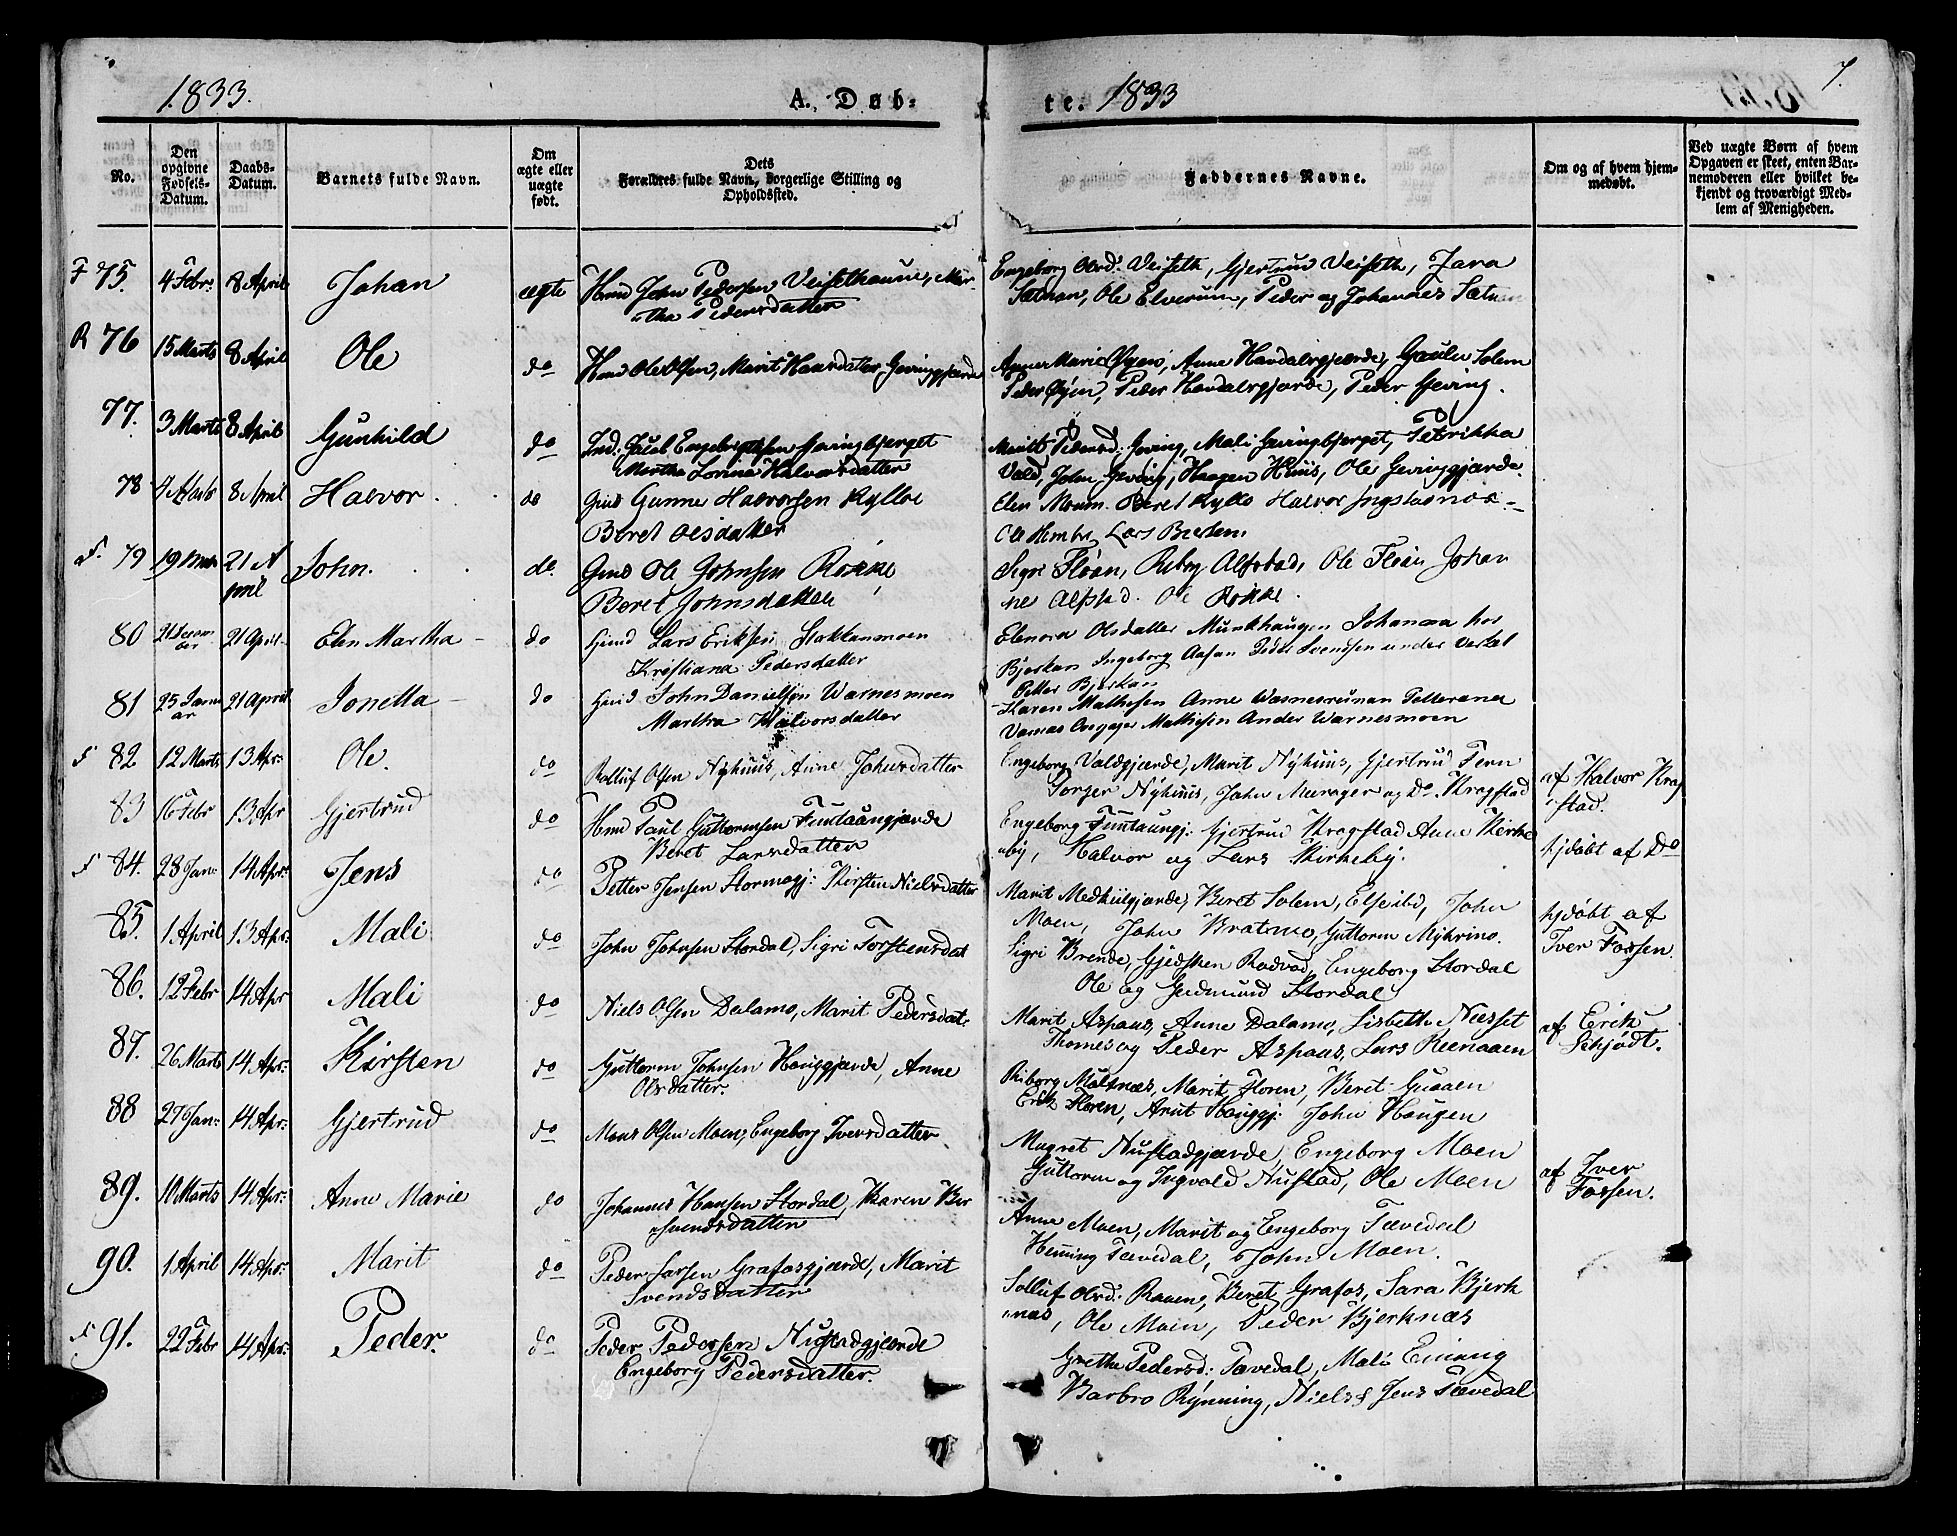 1833. A. Døb-
te. 1833 7.
No.
Den opgivne Fødsels-Datum.
Daabs-Datum.
Barnets fulde Navn.
Om ægte eller uægte født.
Dets Forældres fulde Navn, borgerlige Stilling og Opholdssted.
Faddernes Navne.
Om og af hvem hjem-medøbt.
Ved uægte Børn af hvem Opgaven er skeet, enten Bar-nemoderen eller hvilket be-kjendt og troværdigt Med-lem af Menigheden.
F 75. 4 Febr: 8 April Johan ægte Hmd John Pedersen Veisethaune, Mar-
tha Pedersdatter
Engeborg Olsd: Veiseth, Gjertrud Veiseth, Zara
Sætnan, Ole Elverum, Peder og Johannes Sætnan
R 76 15 Marts 8 April Ole do Hmd Ole Olsen, Marit Hansdatter, Gevinggjærde
Anne Marie Øyen, Anne Havdalsgjærde, Solem
Peder Øyen, Peder Havdalsgjærde, Peder Geving.
77. 3 Marts 8 April Gunhild do Ind: Jacob Engebrigtsen Gevingbjerget
Martha Lorina Halvorsdatter
Marit Pedersd: Geving, Mali Gevingbjerget, Petrikka
Vold, John Geving, Haagen Huus, Ole Gevinggjærde.
78 4 Marts 8 April Halvor. do Gmd Gunne Halvorsen Kyllo
Beret Olsdatter
Elen Moum. Beret Kyllo Halvor Ingstadnæs
Ole Hembre Lars
F. 79 19 21 A
pril John. do. Gmd Ole Johnsen Røkke
Beret Johnsdatter
Sigri Floan, Alfstad, Ole Floan Johan
ne Alfstad. Ole Røkke.
80 21 Decem
ber 21 April Elen Martha do Hmd Lars Eriksen Stokkanmoen
Kristiana Pedersdatter
Elenora Olsdatter Munkhaugen Johanna hos
Bjerkan Ingeborg Aasan Peder Svendsen under Verkel
Petter Bjerkan
81 25 Janu
ar 21 April Jonetta do Hmd John Danielsen Warnesmoen
Martha Halvorsdatter
Karen Mathisen Anne Petterana
Mathisen Ander Warnesmoen
F 82 12 Marts 13 Apr: Ole. do Rolluf Olsen Nyhuus, Anne Johnsdatter
Engeborg Voldgjærde, Marit Nyhuus, Gjertrud Fern
Torger Nyhuus, John Meraager og Do Kragstad
af Halvor Krag
stad.
83 16 Febr 13 Apr Gjertrud do Hmd Paul Guttormsen Funtaangjærde
Beret Larsdatter
Engeborg Funtaungj: Gjertrud Kragstad Anne Kirke
by, Halvor og Lars Kirkeby.
hjdøbt af Do
F 84. 28 Jan: 14 Apr: Jens do Petter Jensen Stormogj: Kirsten Nielsdatter
Marit Medhiilgjærde, Beret Solem, John
Moen, John Bratmo, Guttorm Myhrmo.
85. 1 April 13 Apr: Mali do John Johnsen Stordal, Sigri Torstensdat
Sigri Brende, Gjedsken Rodvad, Engeborg Stordal
Ole og Gudmund Stordal
hjdøbt af
Iver Fossen.
86. 12 Febr 14 Apr Mali do Niels Olsen Dalamo, Marit Pedersdat.
Marit Aspaas, Anne Dalamo, Lisbeth Næsset
Thomes og Peder Aspaas, Lars Reenaaen
af Erik
Schjødt.
87. 26 Marts 14 Apr: Kirsten do Guttorm Johnsen Houggjærde, Anne
Olsdatter.
Riborg Moltnæs, Marit Floren, Beret
Erik Floren, Arnt Houggj: John Hougen
88 27 Jan: 14 Apr: Gjertrud do Mons Olsen Moen, Engeborg Iversdatter
Magret Nustadgjærde, Engeborg Moen
Guttorm og Ingvald Nustad, Ole Moen
af Iver
Fossen.
89. 10 Marts 14 Apr: Anne Marie do Johannes Hansen Stordal, Karen
Svendsdatter
Anne Moen, Marit og Engeborg Tævedal
Henning Tævedal, John Moen.
90. 1 April 14 Apr: Marit do Peder Larsen Grafosgjærde, Marit
Svendsdatter
Solluf Olsd: Raaen, Beret Grafos, Sara Bjerk
næs, Ole Moen, Peder Bjerknæs
F 91. 22 Febr 14 Apr: Peder. do Peder Pedersen Nustadgjærde
Engeborg Pedersdatter.
Grethe Pedersd: Tævedal, Mali Einang
Barbro Rynning, Niels & Jens Tævedal